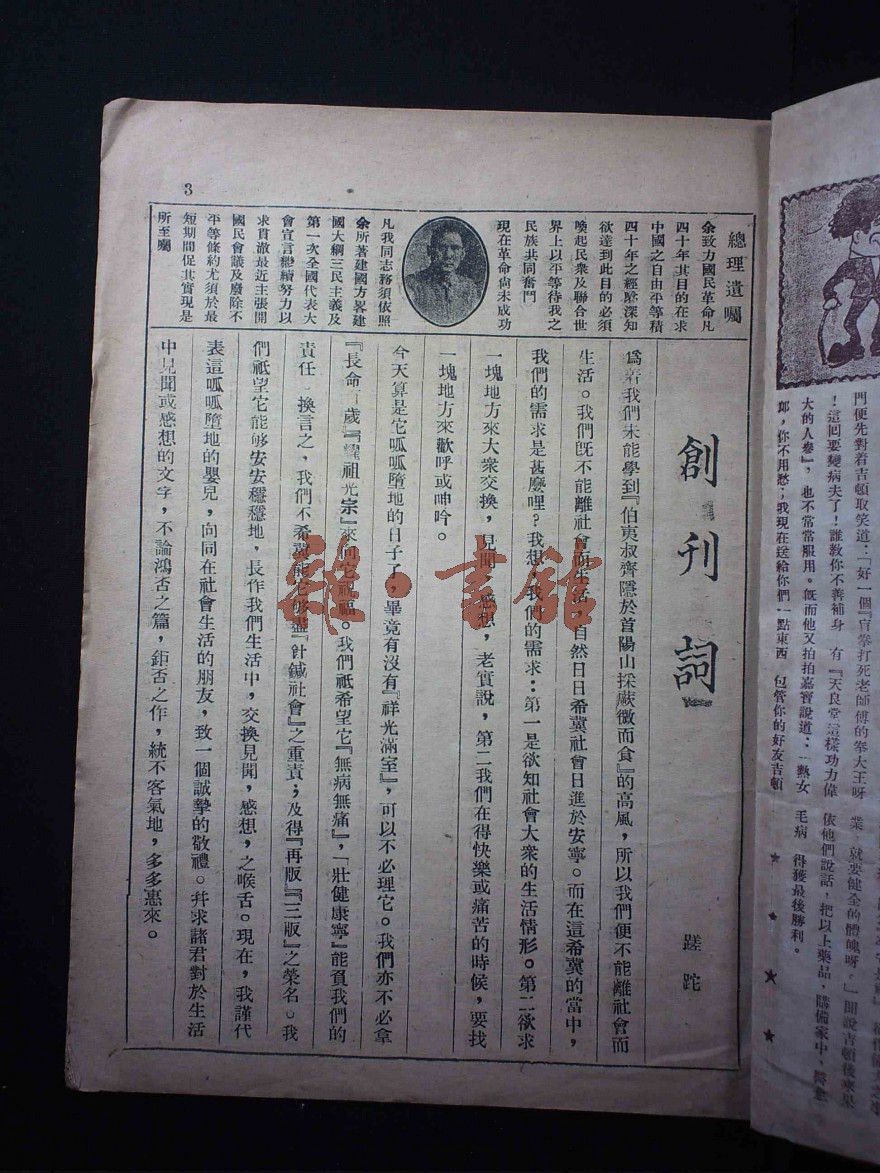 3
總理遺囑
余致力國民革命凡
四十年其目的在求
中國之自由平等積
四十年之經驗深知
欲達到此目的必須
喚起民眾及聯合世
界上以平等待我之
民族共同奮鬥
現在革命尚未成功
凡我同志務須依照
余所著建國方畧建
國大綱三民主義及
第一次全國代表大
會宣言繼續努力以
求貫澈最近主張開
國民會議及廢除不
平等條約尤須於最
短期間促其實現是
所至囑
創刊詞
蹉跎
為着我們未能學到『伯夷叔齊隱於首陽山採蕨薇而食』的高風,所以我們便不能離社會而
生活。我們既不能離社會而生活,自然日日希冀社會日進於安寧。而在這希冀的當中,
我們的需求是甚麼哩?我想,我們的需求:第一是欲知社會大衆的生活情形。第二欲求
一塊地方來大衆交換,見聞,感想,老實說,第二我們在得快樂或痛苦的時候,要找
一塊地方來歡呼或呻吟。
今天算是它呱呱墮地的日子了,畢竟有沒有『祥光滿室』,可以不必理它。我們亦不必拿
『長命 歲』『耀祖光宗』來向它祝福。我們祇希望它『無病無痛』,「壯健康寧』能負我們的
責任 換言之,我們不希冀能它够盡『針鍼社會』之重責;及得『再版』『三版』之榮名。我
們祇望它能够安安穩穩地,長作我們生活中,交換見聞,感想,之喉舌。現在,我謹代
表這呱呱墮地的嬰兒,向同在社會生活的朋友,致一個誠摯的敬禮。并求諸君對於生活
中見聞或感想的文字,不論鴻否之篇,鉅否之作,統不客氣地,多多惠來。
雜·書館
門便先對着吉頓取笑道:「好一個『盲拳打死老師傅的拳大王呀
!這回要變病夫了!誰教你不善補身 有『天良堂 這樣功力偉
大的人參』,也不常常服用。旣而他又拍拍嘉寶說道:一熱女
郎,你不用愁;我現在送給你們一點東西 包管你的好友吉頓
業 就要健全的體魄呀。」聞說吉頓後來果
依他們說話,把以上藥品,購備家中,
毛病 得獲最後勝利。